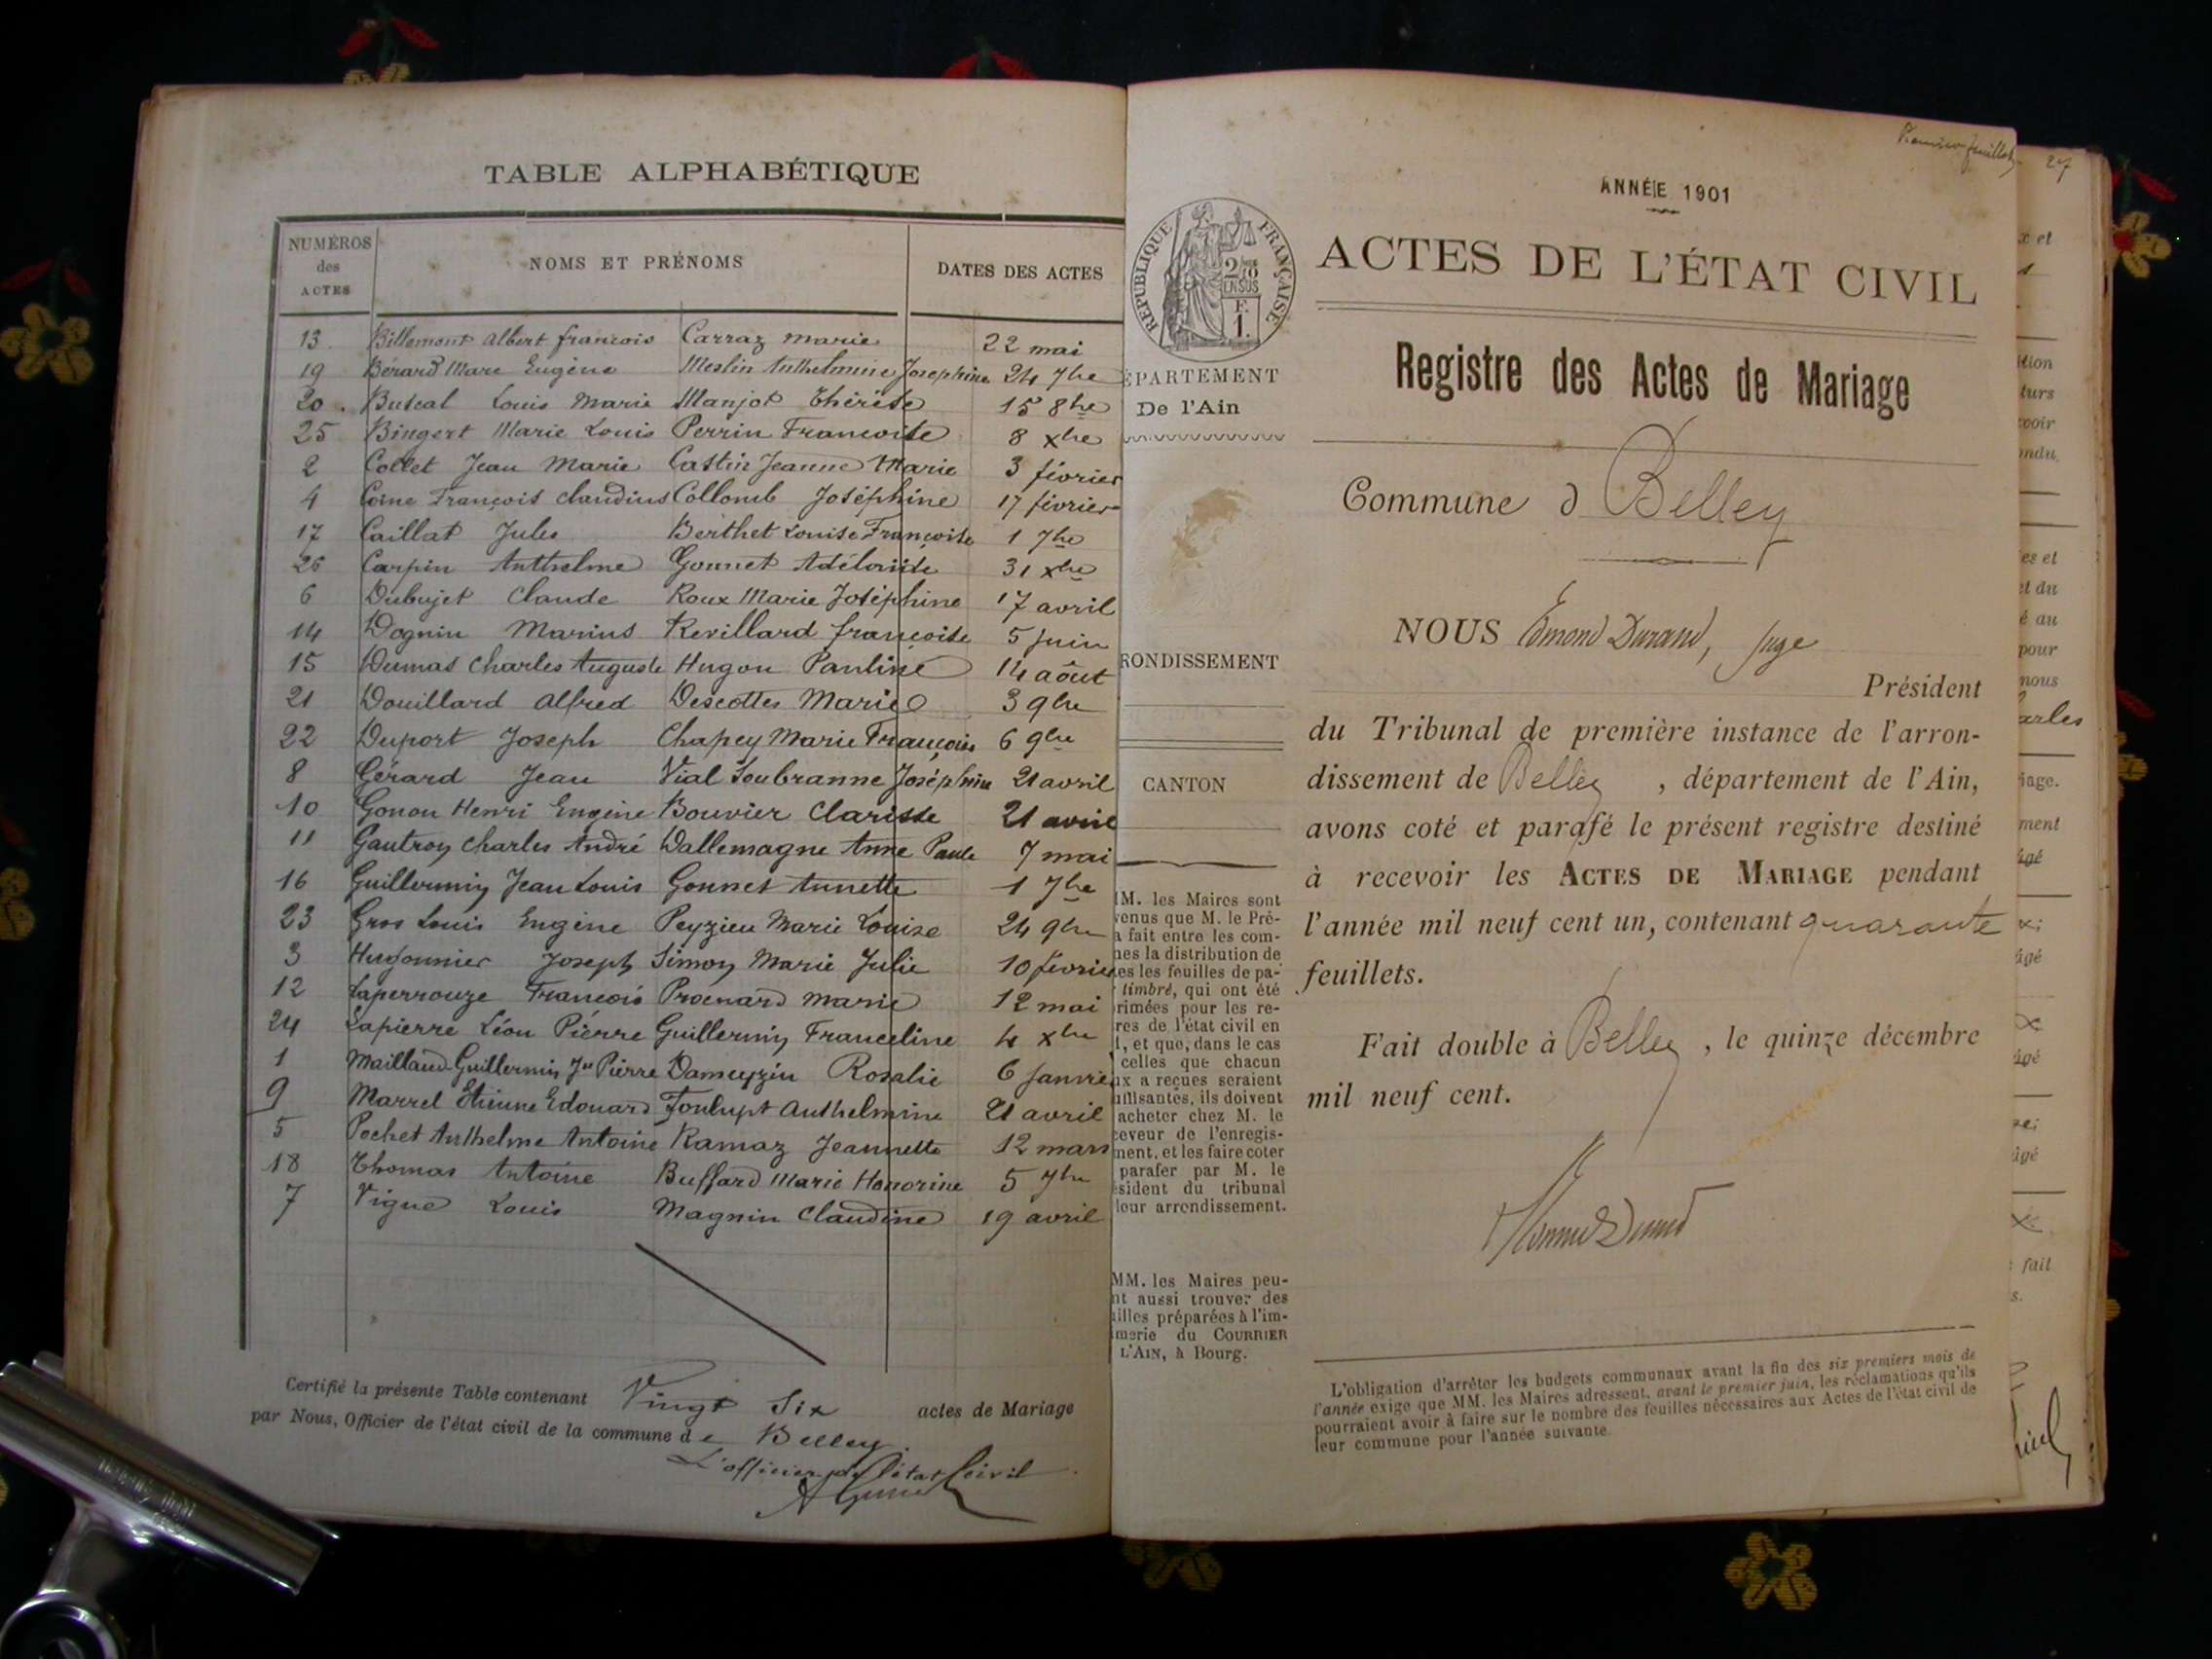 TABLE ALPHABÉTIQUE
NUMÉROS des ACTES NOMS ET PRÉNOMS DATES DES ACTES
13 Billemont Albert françois Carraz Marie 22 mai
19 Bérard Marc Eugène Meslin Anthelmine Josephine 24 7bre
20 Buscal Louis Marie Manjot Thérèse 15 8bre
25 Bingert Marie Louis Perrin Francoise 8 xbre
2 Collet Jean Marie Castin Jeanne Marie 3 février
4 Coine François Claudius Collomb Joséphine 17 février
17 Caillat Jules Berthet Louise Françoise 1 7bre
26 Carpin Anthelme Gonnet Adélaïde 31 xbre
6 Dubujet Claude Roux Marie Joséphine 17 avril
14 Dognin Marius Revillard françoise 5 juin
15 Dumas Charles Auguste Hugon Pauline 14 août
21 Douillard Alfred Descottes Marie 3 9bre
22 Duport Joseph Chapey Marie Françoise 6 9bre
8 Gérard Jean Vial Soubranne Joséphine 21 avril
10 Gonon Henri Eugène Bouvier Clarisse 21 avril
11 Gautroy Charles André Dallemagne Anne Paule 7 mai
16 Guillermin Jean Louis Gonnet Annette 1 7bre
23 Gros Louis Eugène Peyzieu Marie Louise 24 9bre
3 Hugonnier Joseph Simon Marie Julie 10 février
12 Laperrouze François Proenard Marie 12 mai
24 Lapierre Léon Pierre Guillermin Franceline 4 xbre
1 Mailland Guillermin Jn Pierre Dameyzin Rosalie 6 Janvier
9 Marrel Etienne Edouard Foulupt Anthelmine 21 avril
5 Pochet Anthelme Antoine Ramaz Jeannette 12 mars
18 Thomas Antoine Buffard Marie Honorine 5 7bre
7 Vigne Louis Magnin Claudine 19 avril
Certifié la présente Table contenant Vingt Six actes de Mariage
par Nous, Officier de l'état civil de la commune de Belley.
L'officier de l'état Civil
Premier feuillet
27
ANNÉE 1901
RÉPUBLIQUE FRANÇAISE
ACTES DE L'ÉTAT CIVIL
Registre des Actes de Mariage
ÉPARTEMENT
De l'Ain
Commune d Belley
RONDISSEMENT
CANTON
NOUS Edmond Durand, Juge
Président
du Tribunal de première instance de l'arron-
dissement de Belley, département de l'Ain,
avons coté et parafé le présent registre destiné
à recevoir les ACTES DE MARIAGE pendant
l'année mil neuf cent un, contenant quarante
feuillets.
Fait double à Belley, le quinze décembre
mil neuf cent.
MM. les Maires sont
venus que M. le Pré-
a fait entre les com-
nes la distribution de
es les feuilles de pa-
timbré, qui ont été
rimées pour les re-
res de l'état civil en
1, et que, dans le cas
celles que chacun
ux a reçues seraient
uffisantes, ils doivent
acheter chez M. le
ceveur de l'enregis-
ment, et les faire coter
parafer par M. le
ésident du tribunal
leur arrondissement.
MM. les Maires peu-
nt aussi trouver des
uilles préparées à l'im-
merie du COURRIER
L'AIN, à Bourg.
L'obligation d'arrêter les budgets communaux avant la fin des six premiers mois de
l'année exige que MM. les Maires adressent, avant le premier juin, les réclamations qu'ils
pourraient avoir à faire sur le nombre des feuilles nécessaires aux Actes de l'état civil de
leur commune pour l'année suivante.